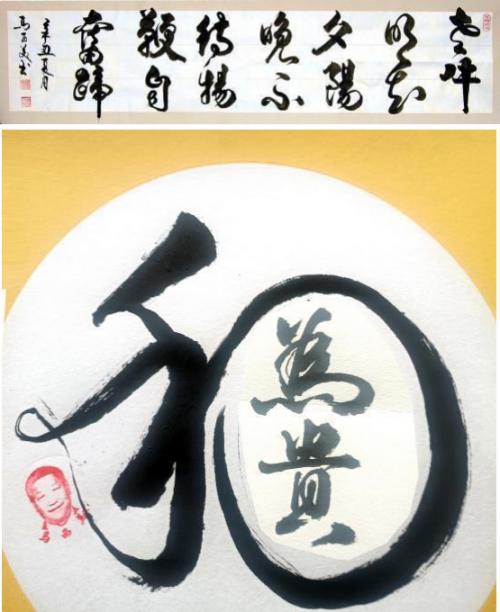 老
明知
夕陽
晚不
待揚
鞭自
奮蹄
辛丑夏月
和
為貴